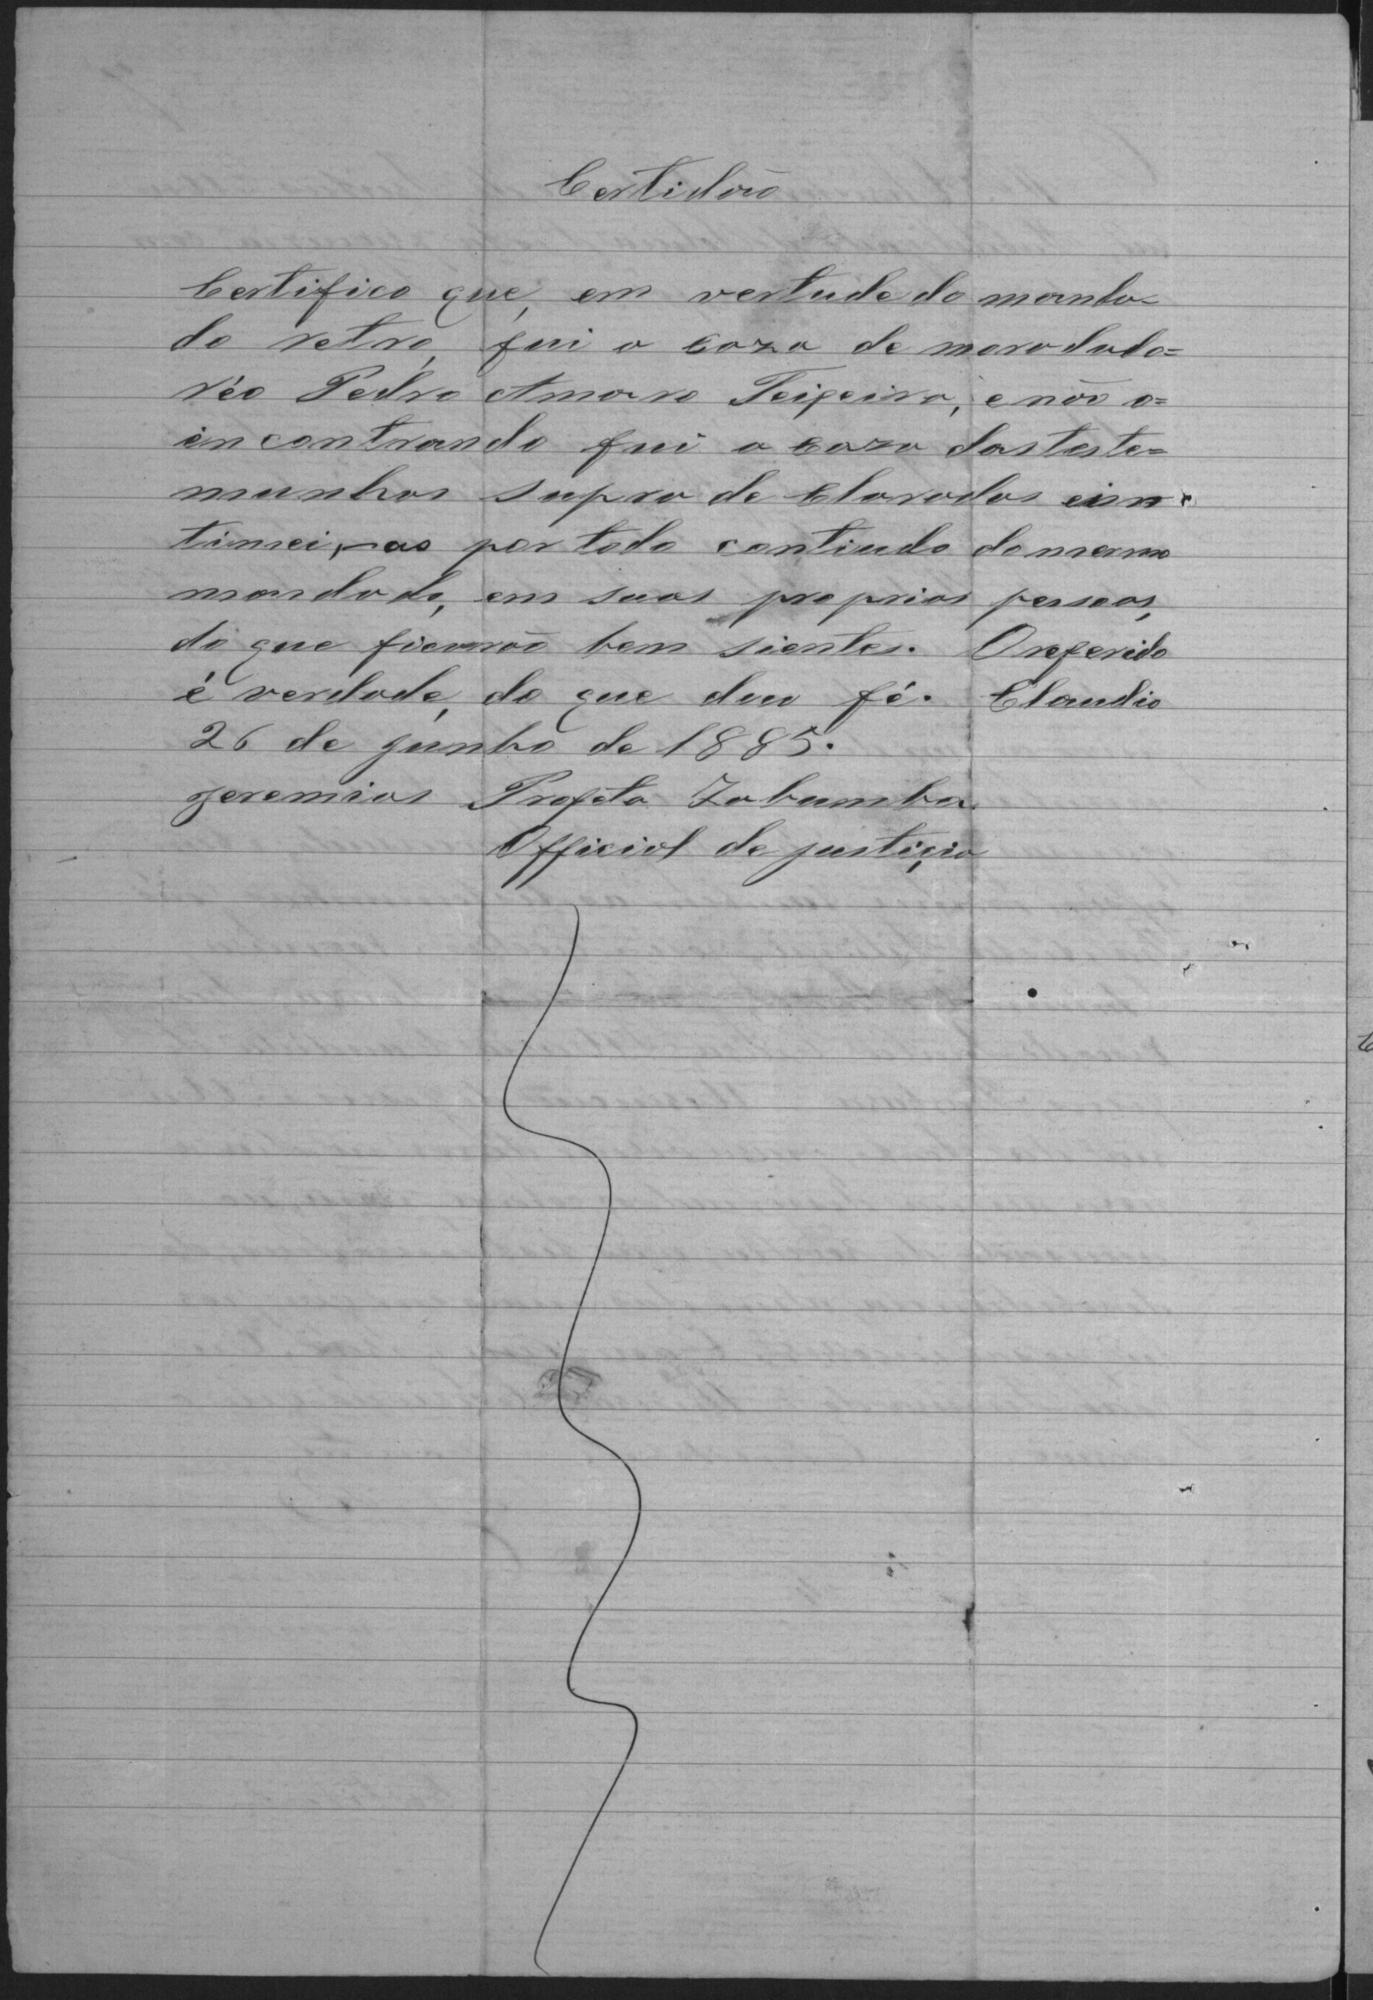 Certidão
Certifico que, em vertude do manda-
do retro, fui a caza de morada do=
réo Pedro Amaro Teixeira, e não o=
incontrando fui a caza das teste=
munhas supra de Claradas ein-
timei, as por todo contiudo do mesmo
mandado, em suas proprias pesseas,
do que ficarão bem sientes. O referido
é verdade, do que dou fé. Claudio
26 de junho de 1885.
Jeremias Profeta Zabumba
Official de justiçia